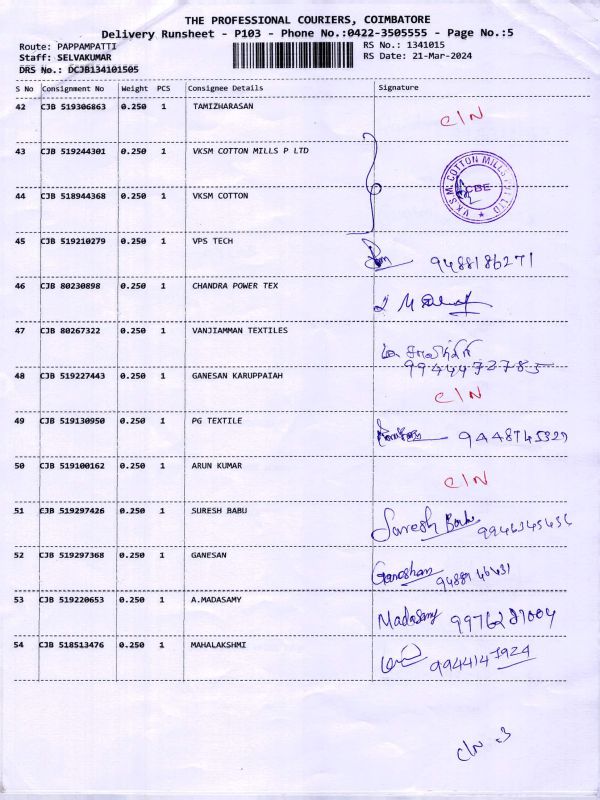 THE PROFESSIONAL COURIERS, COIMBATORE
Delivery Runsheet - P103 - Phone No.:0422-3505555 - Page No.:5
Route: PAPPAMPATTI RS No.: 1341015
Staff: SELVAKUMAR RS Date: 21-Mar-2024
DRS No.: DCJB134101505
S No Consignment No Weight PCS Consignee Details Signature
42 CJB 519306863 0.250 1 TAMIZHARASAN C/N
43 CJB 519244301 0.250 1 VKSM COTTON MILLS P LTD
V.K.S.M. COTTON MILLS PVT LTD
CBE
44 CJB 518944368 0.250 1 VKSM COTTON
45 CJB 519210279 0.250 1 VPS TECH 9488186271
46 CJB 80230898 0.250 1 CHANDRA POWER TEX
47 CJB 80267322 0.250 1 VANJIAMMAN TEXTILES
9944472785
48 CJB 519227443 0.250 1 GANESAN KARUPPAIAH C/N
49 CJB 519130950 0.250 1 PG TEXTILE
50 CJB 519100162 0.250 1 ARUN KUMAR C/N
51 CJB 519297426 0.250 1 SURESH BABU Suresh
52 CJB 519297368 0.250 1 GANESAN
53 CJB 519220653 0.250 1 A.MADASAMY Madasamy
54 CJB 518513476 0.250 1 MAHALAKSHMI 9944147924
C/N - 3